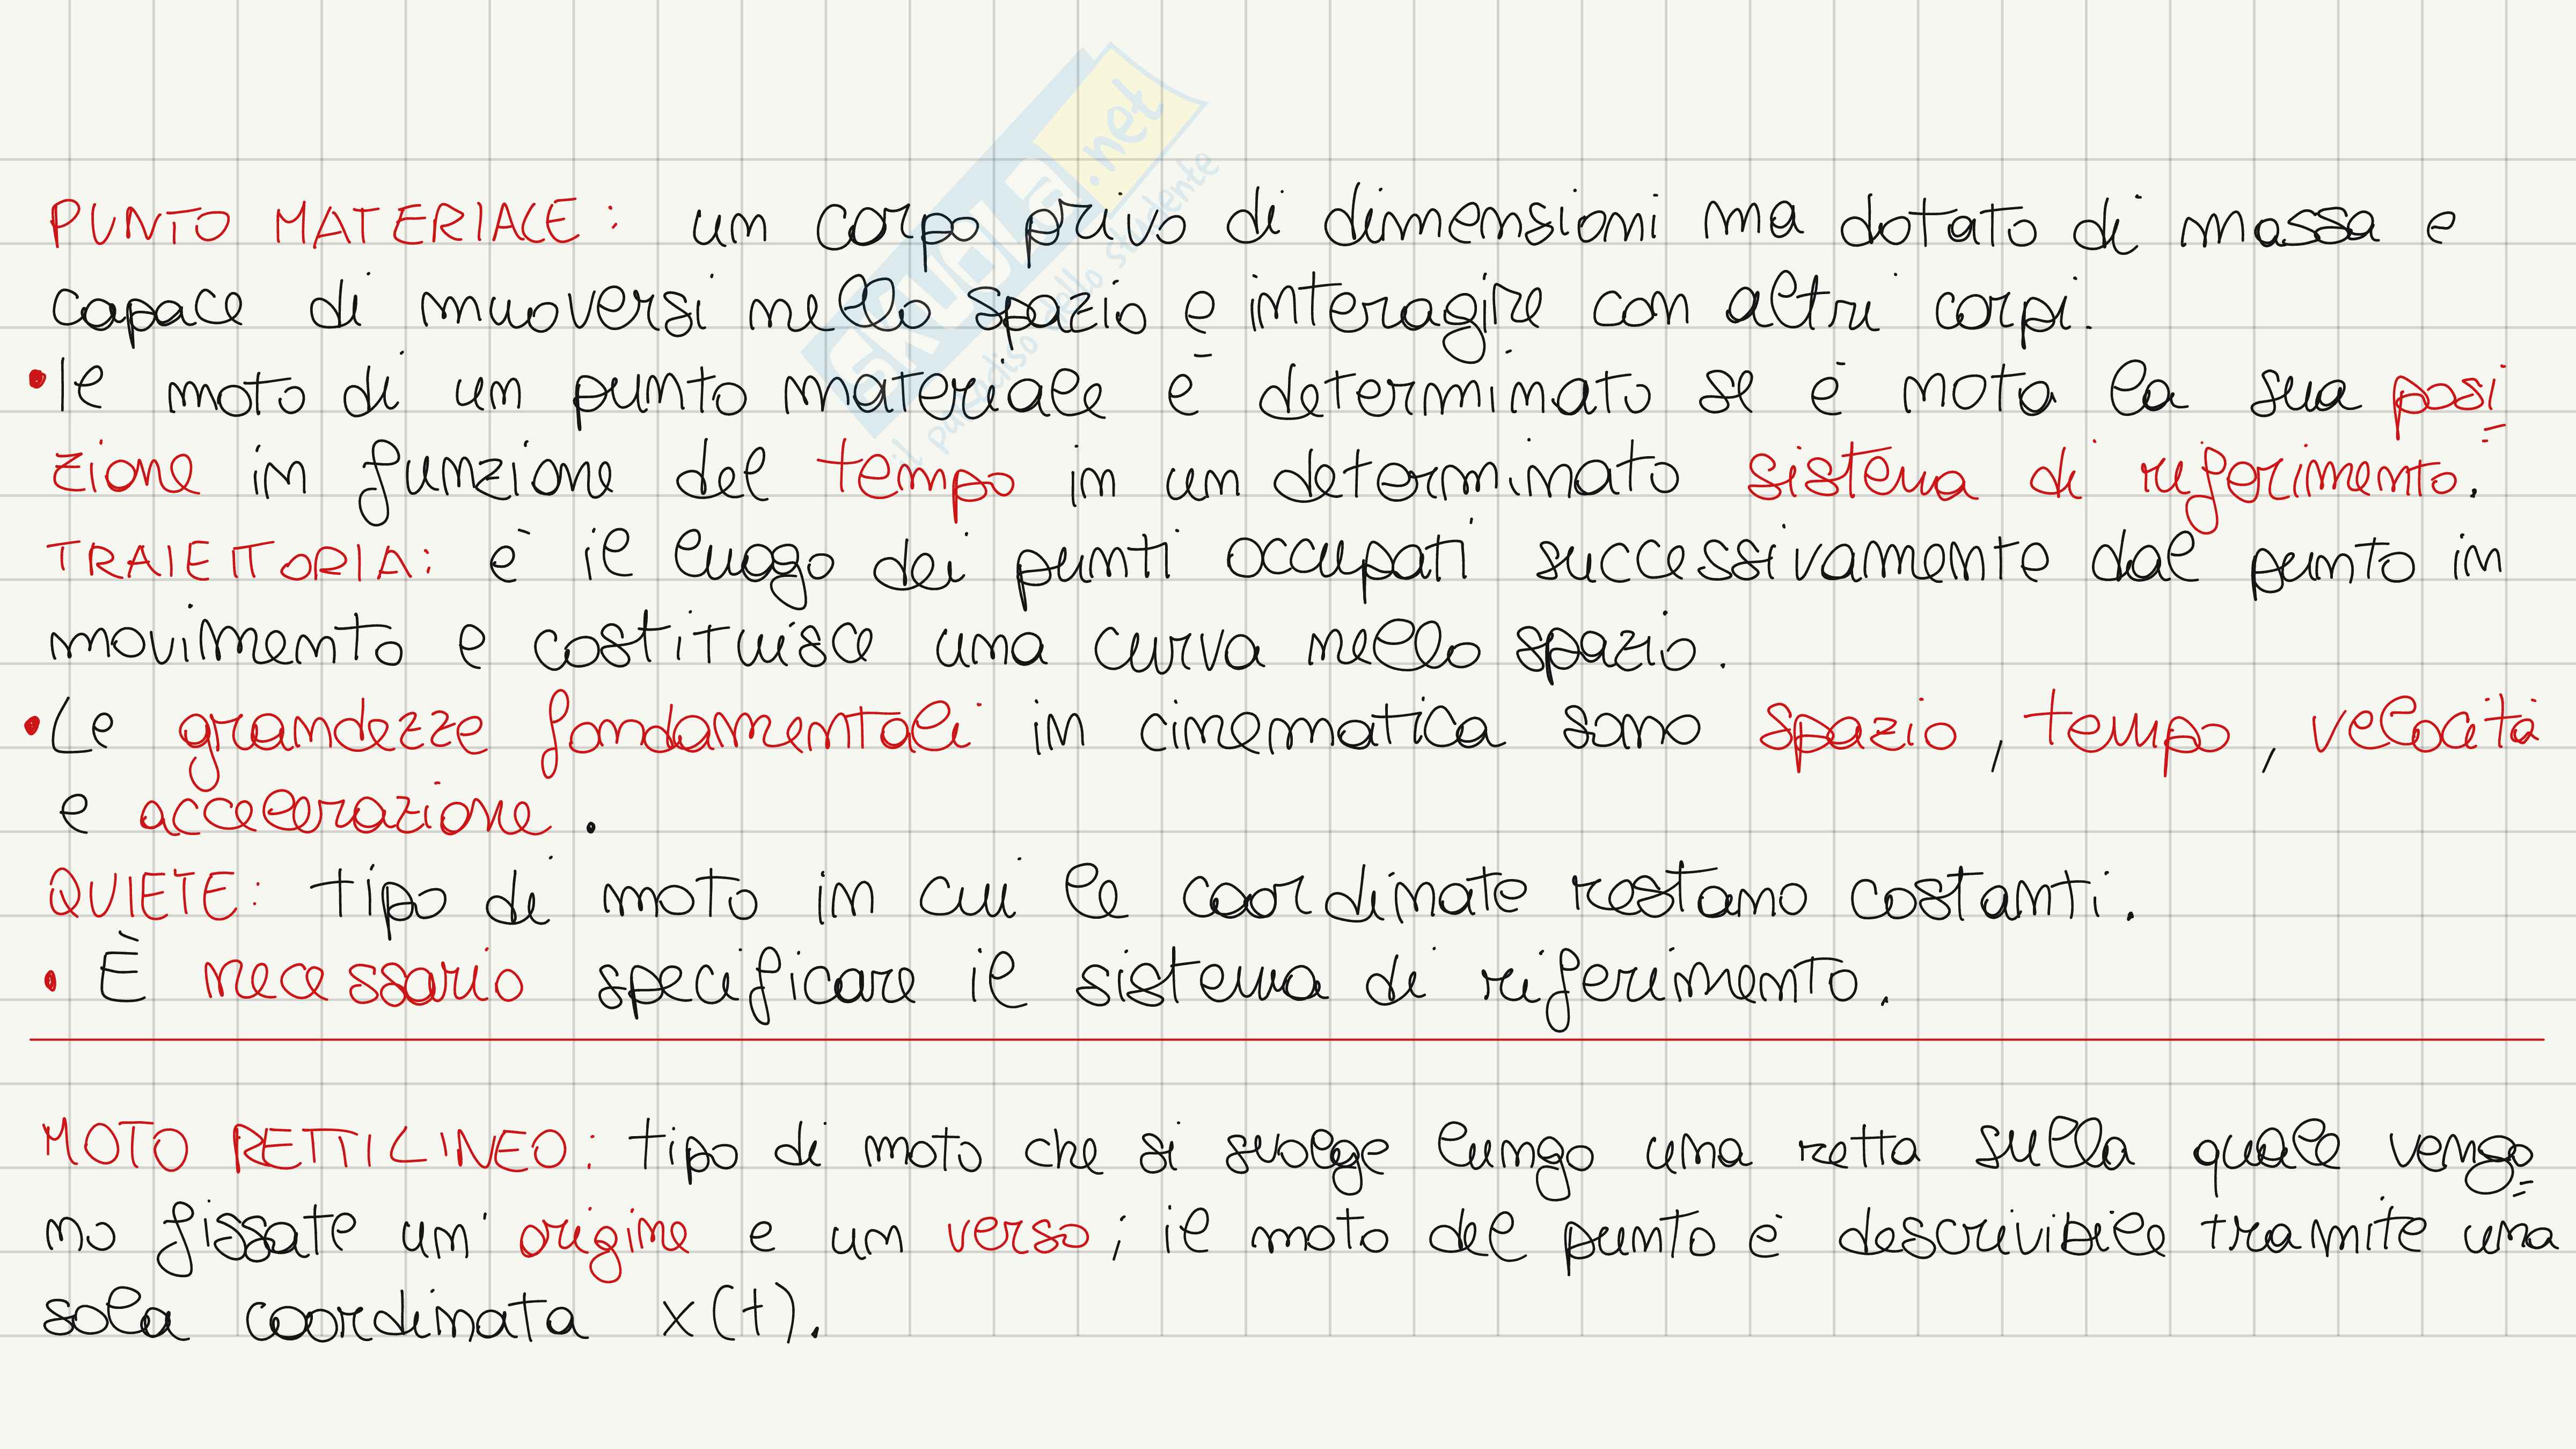 PUNTO MATERIALE: un corpo privo di dimensioni ma dotato di massa e
capace di muoversi nello spazio e interagire con altri corpi.
•Il moto di un punto materiale è determinato se è nota la sua posi
zione in funzione del tempo in un determinato sistema di riferimento.
TRAIETTORIA: è il luogo dei punti occupati successivamente dal punto in
movimento e costituisce una curva nello spazio.
•Le grandezze fondamentali in cinematica sono spazio, tempo, velocità
e accelerazione.
QUIETE: tipo di moto in cui le coordinate restano costanti.
• È necessario specificare il sistema di riferimento.
MOTO RETTILINEO: tipo di moto che si svolge lungo una retta sulla quale vengo
no fissate un' origine e un verso; il moto del punto è descrivibile tramite una
sola coordinata x(t).
SKUOLA.net
il paradiso dello studente